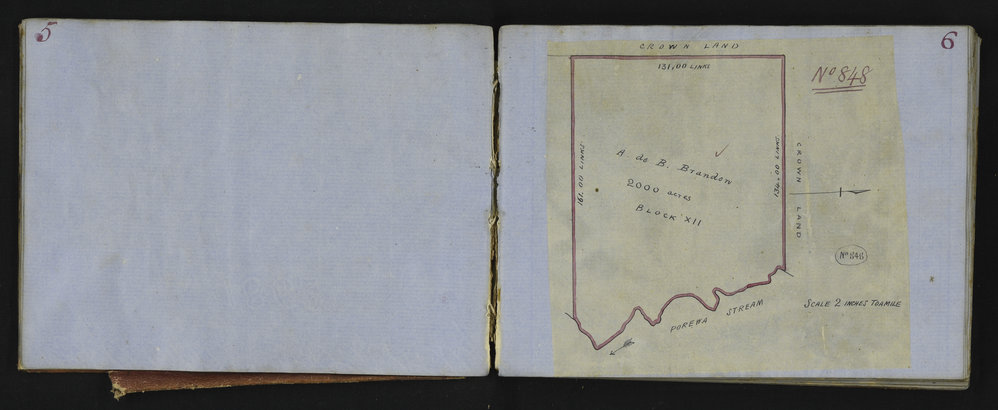 5
6
CROWN LAND
131,00 LINKS
No 848
A. de B. Brandon
2000 acres
BLOCK XII
161.00 LINKS
134.00 LINKS
CROWN LAND
No 848
SCALE 2 INCHES TO A MILE
POREWA STREAM